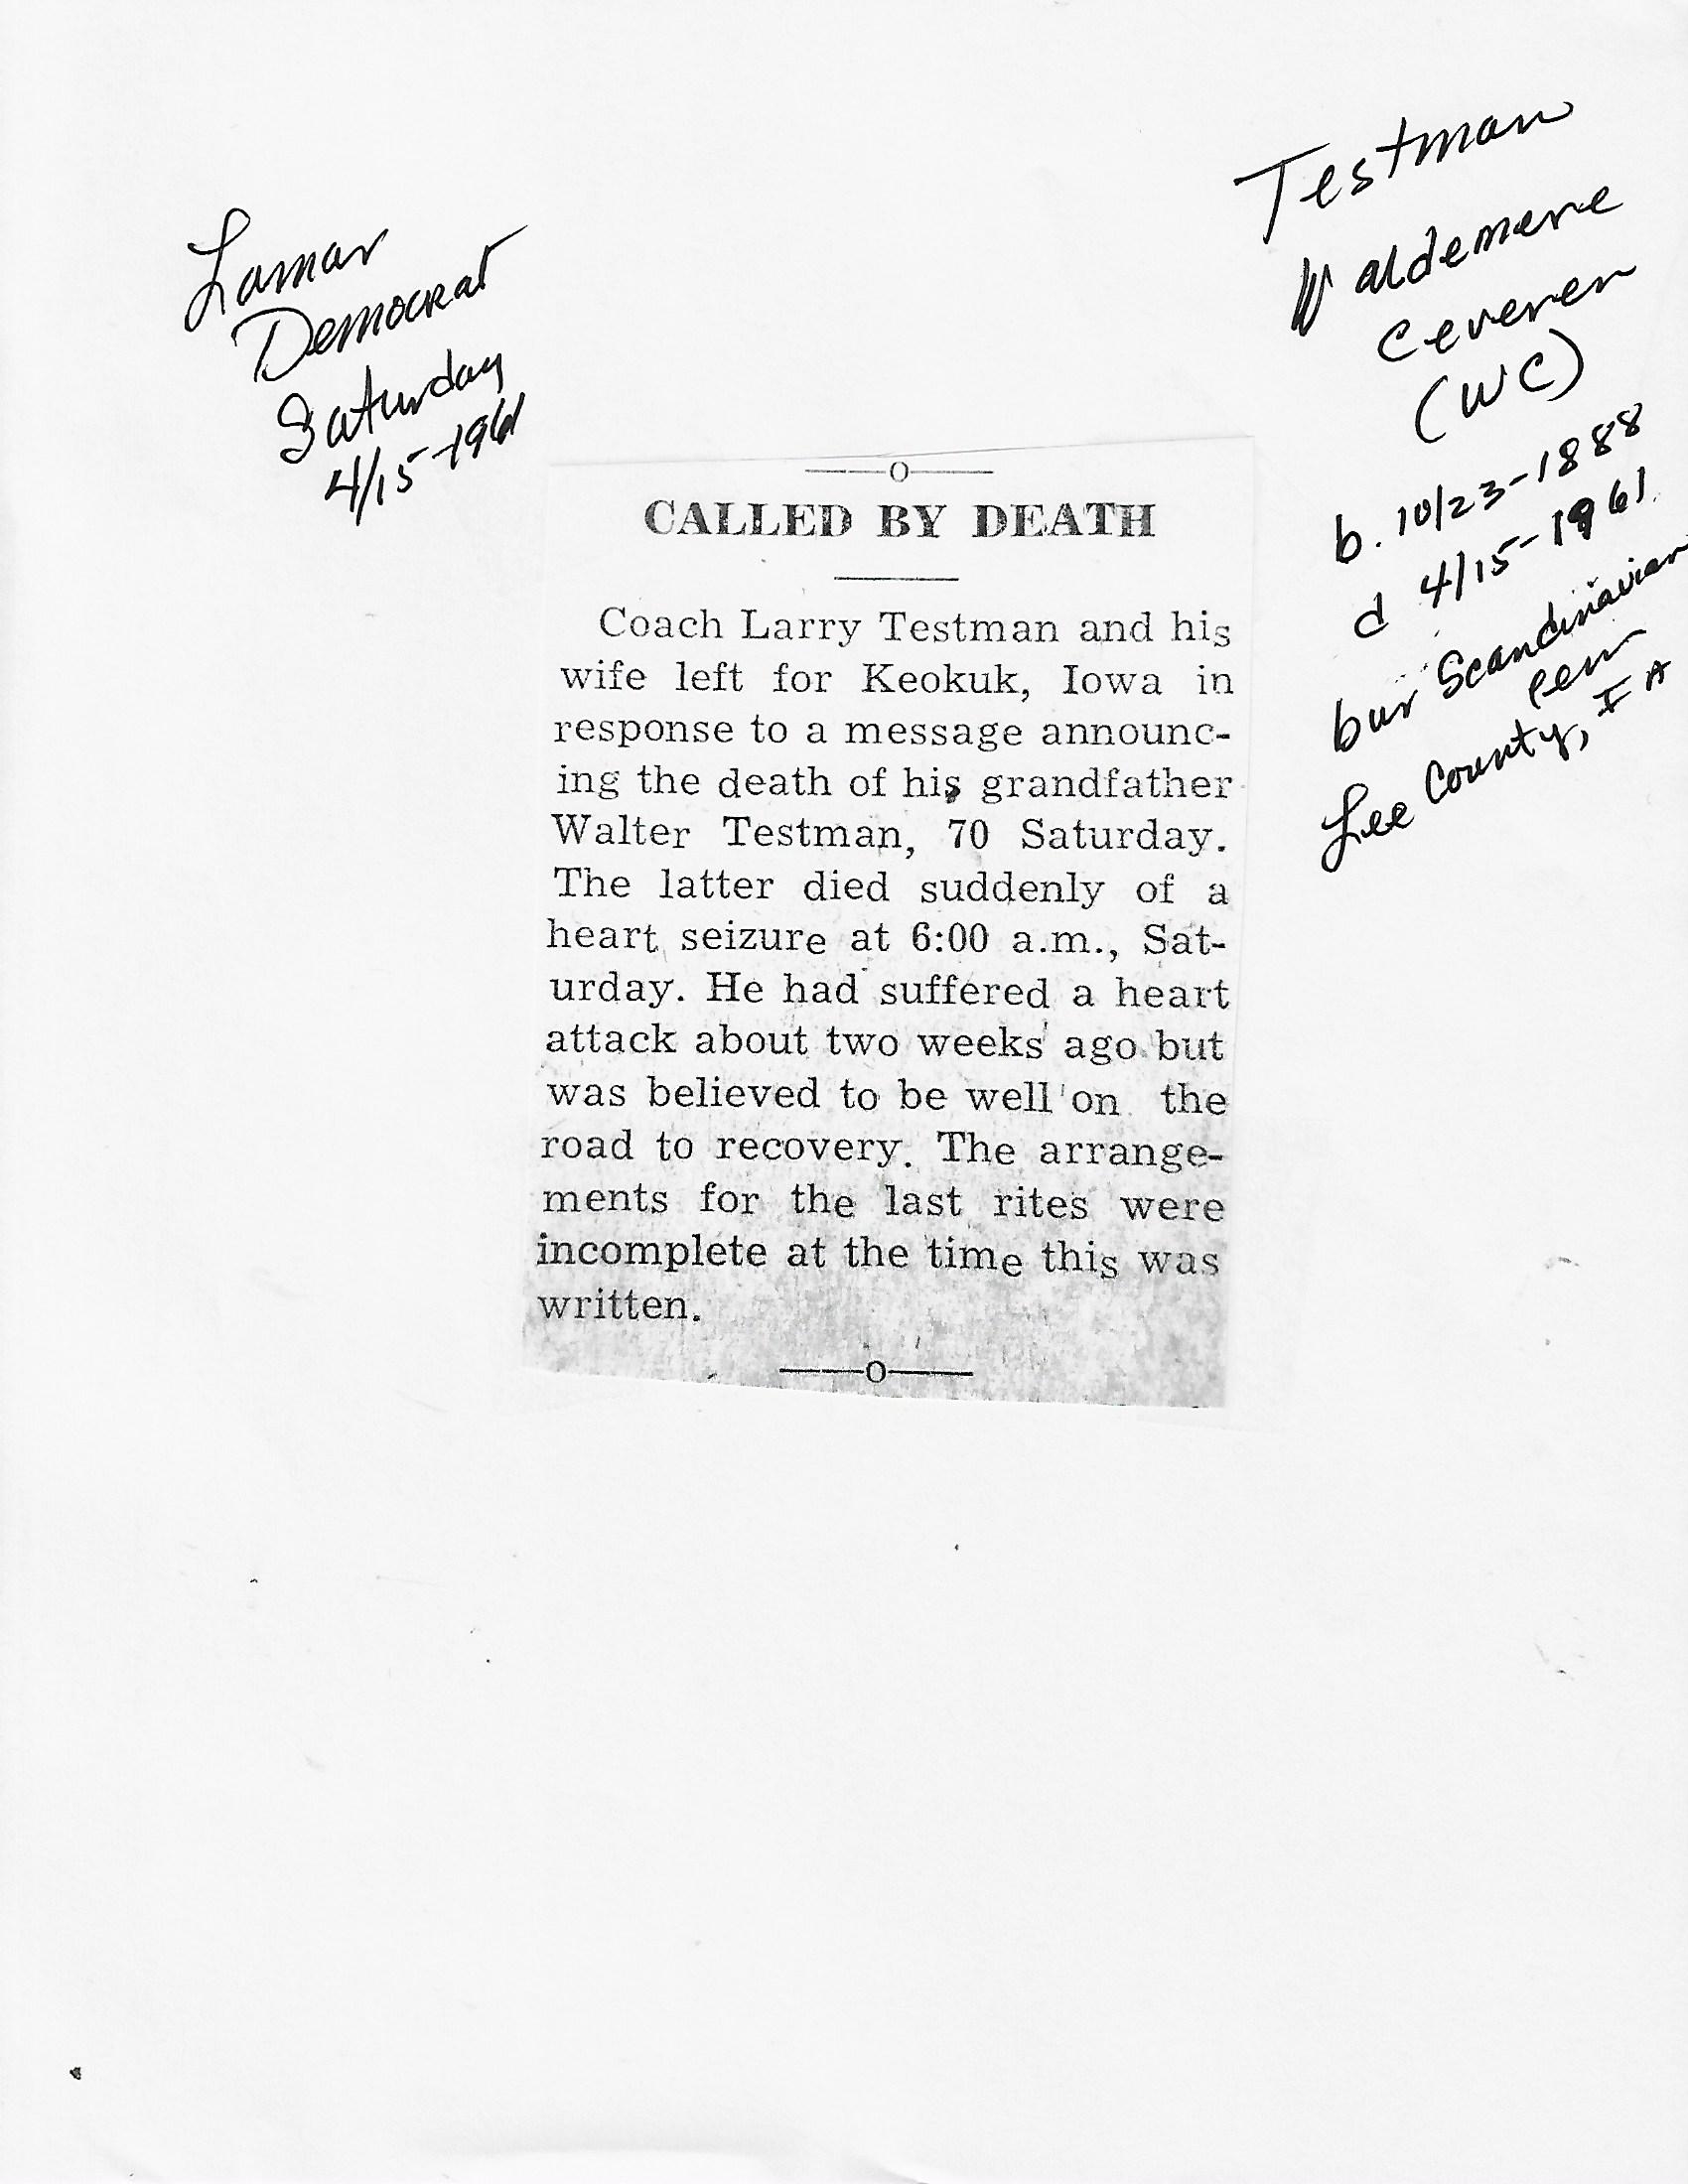 Testman
Waldemere
Ceveren
(WC)
b. 10/23-1888
d 4/15-1961.
bur Scandinavian
cem
Lee County, IA
Lamar
Democrat
Saturday
4/15-1961
——O——
CALLED BY DEATH
Coach Larry Testman and his
wife left for Keokuk, Iowa in
response to a message announc-
ing the death of his grandfather
Walter Testman, 70 Saturday.
The latter died suddenly of a
heart seizure at 6:00 a.m., Sat-
urday. He had suffered a heart
attack about two weeks ago but
was believed to be well on the
road to recovery. The arrange-
ments for the last rites were
incomplete at the time this was
written.
——O——